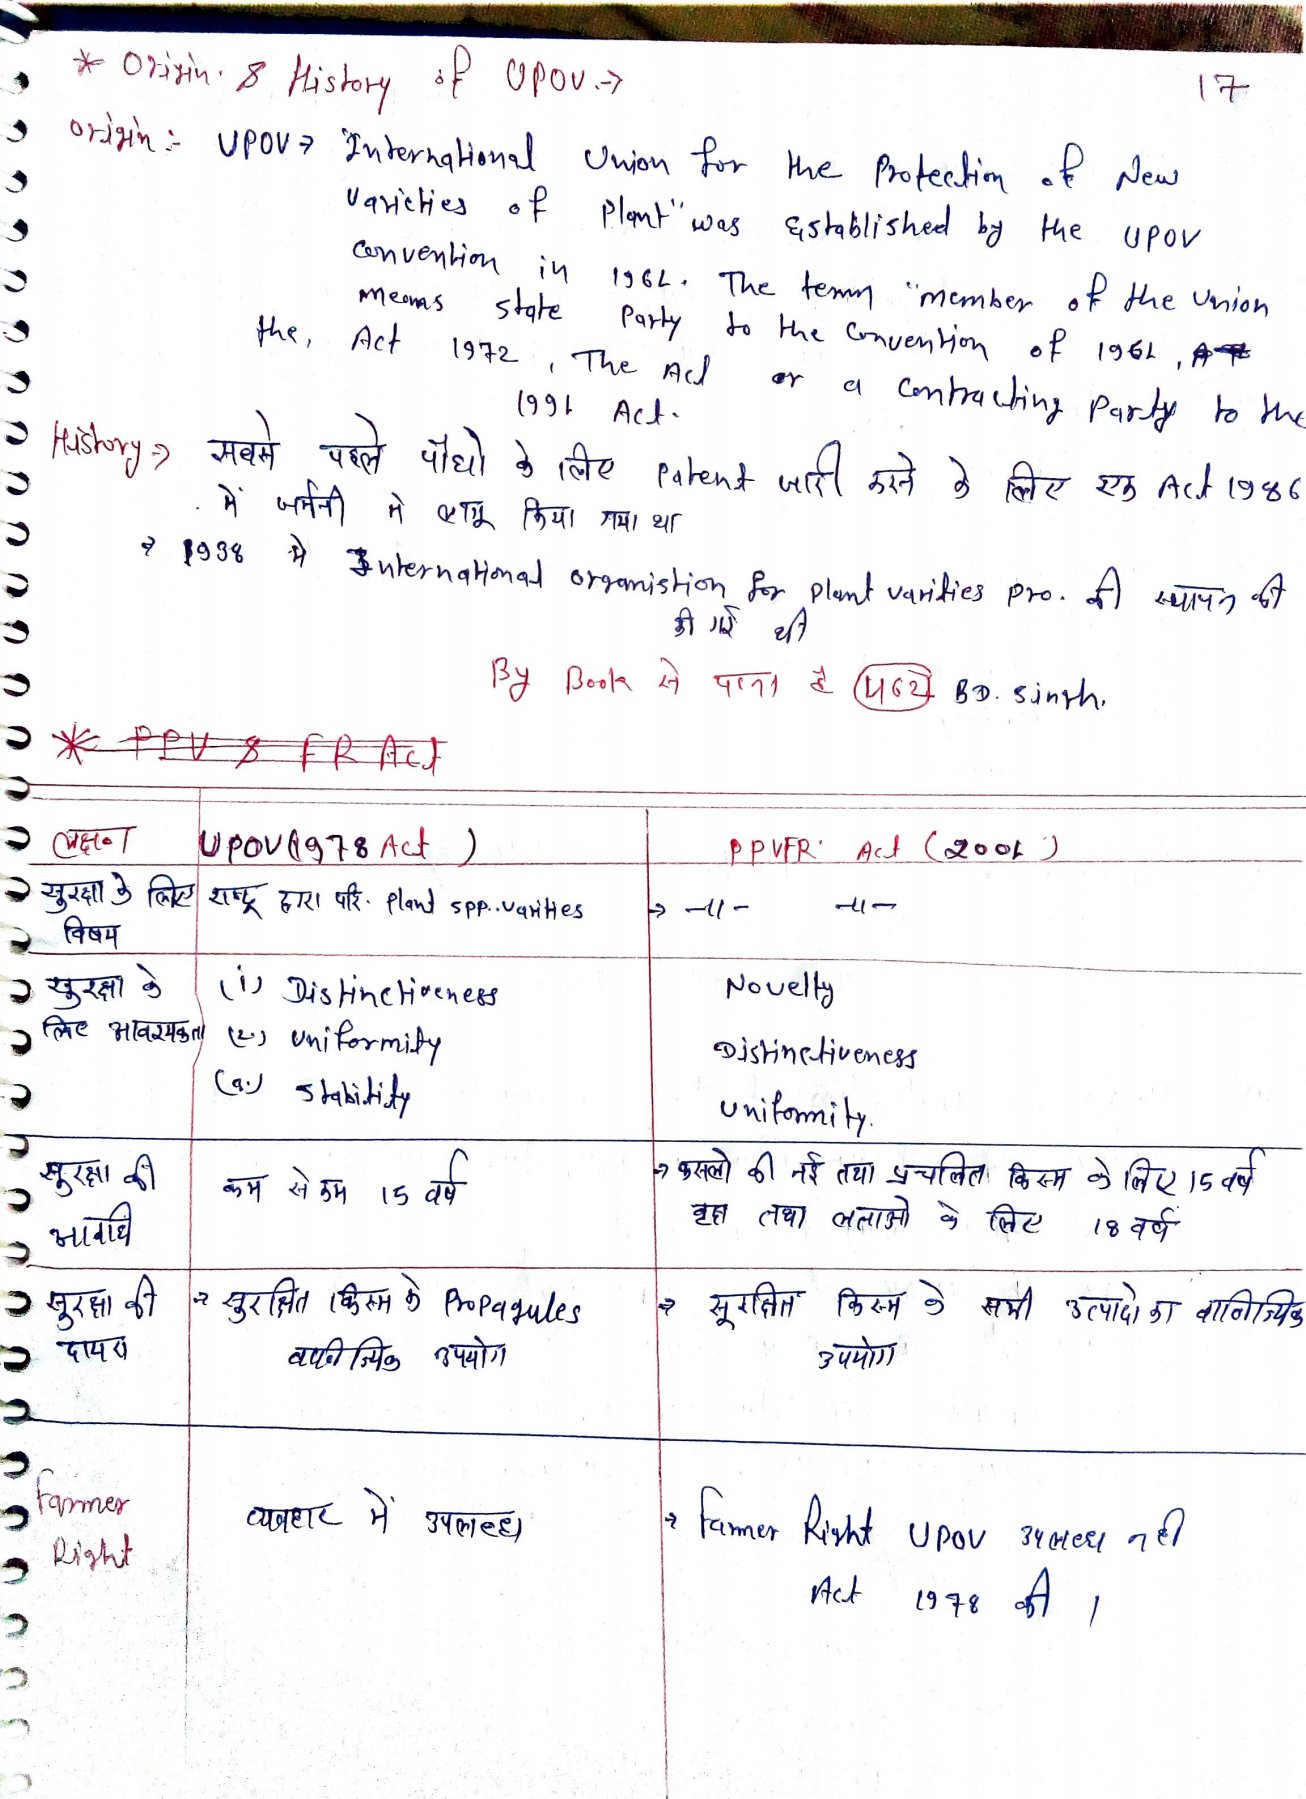 * Origin & History of UPOV →
17
Origin :- UPOV → "International Union for the Protection of New
Varieties of Plant" was Established by the UPOV
Convention in 1961. The term "member of the Union
means state Party to the Convention of 1961,
the, Act 1972, The Act or a Contracting Party to the
1991 Act.
History → सबसे पहले पौधो के लिए Patent जारी करने के लिए एक Act 1986
में जर्मनी मे लागू किया गया था
→ 1938 मे International organistion for plant varities pro. की स्थापन की
की गई थी
By Book से पाना है 462 BD. Singh.
* PPV & FR Act
लक्षण UPOV (1978 Act) PPVFR Act (2001)
सुरक्षा के लिए राष्ट्र द्वारा परि. plant spp..varities → -11- -11-
विषय
सुरक्षा के (i) Distinctiveness Novelty
लिए आवश्यकता (2.) Uniformity Distinctiveness
(3.) Stability Uniformity.
सुरक्षा की कम से कम 15 वर्ष → फसलो की नई तथा प्रचलित किस्म के लिए 15 वर्ष
अवधि वृक्ष तथा लताओ के लिए 18 वर्ष
सुरक्षा की → सुरक्षित किस्म के Propagules → सूरक्षित किस्म के सभी उत्पादो का वानिज्यिक
दायरा वानिज्यिक उपयोग उपयोग
Farmer व्यवहार में उपलब्ध → Farmer Right UPOV उपलब्ध नही
Right Act 1978 की ।